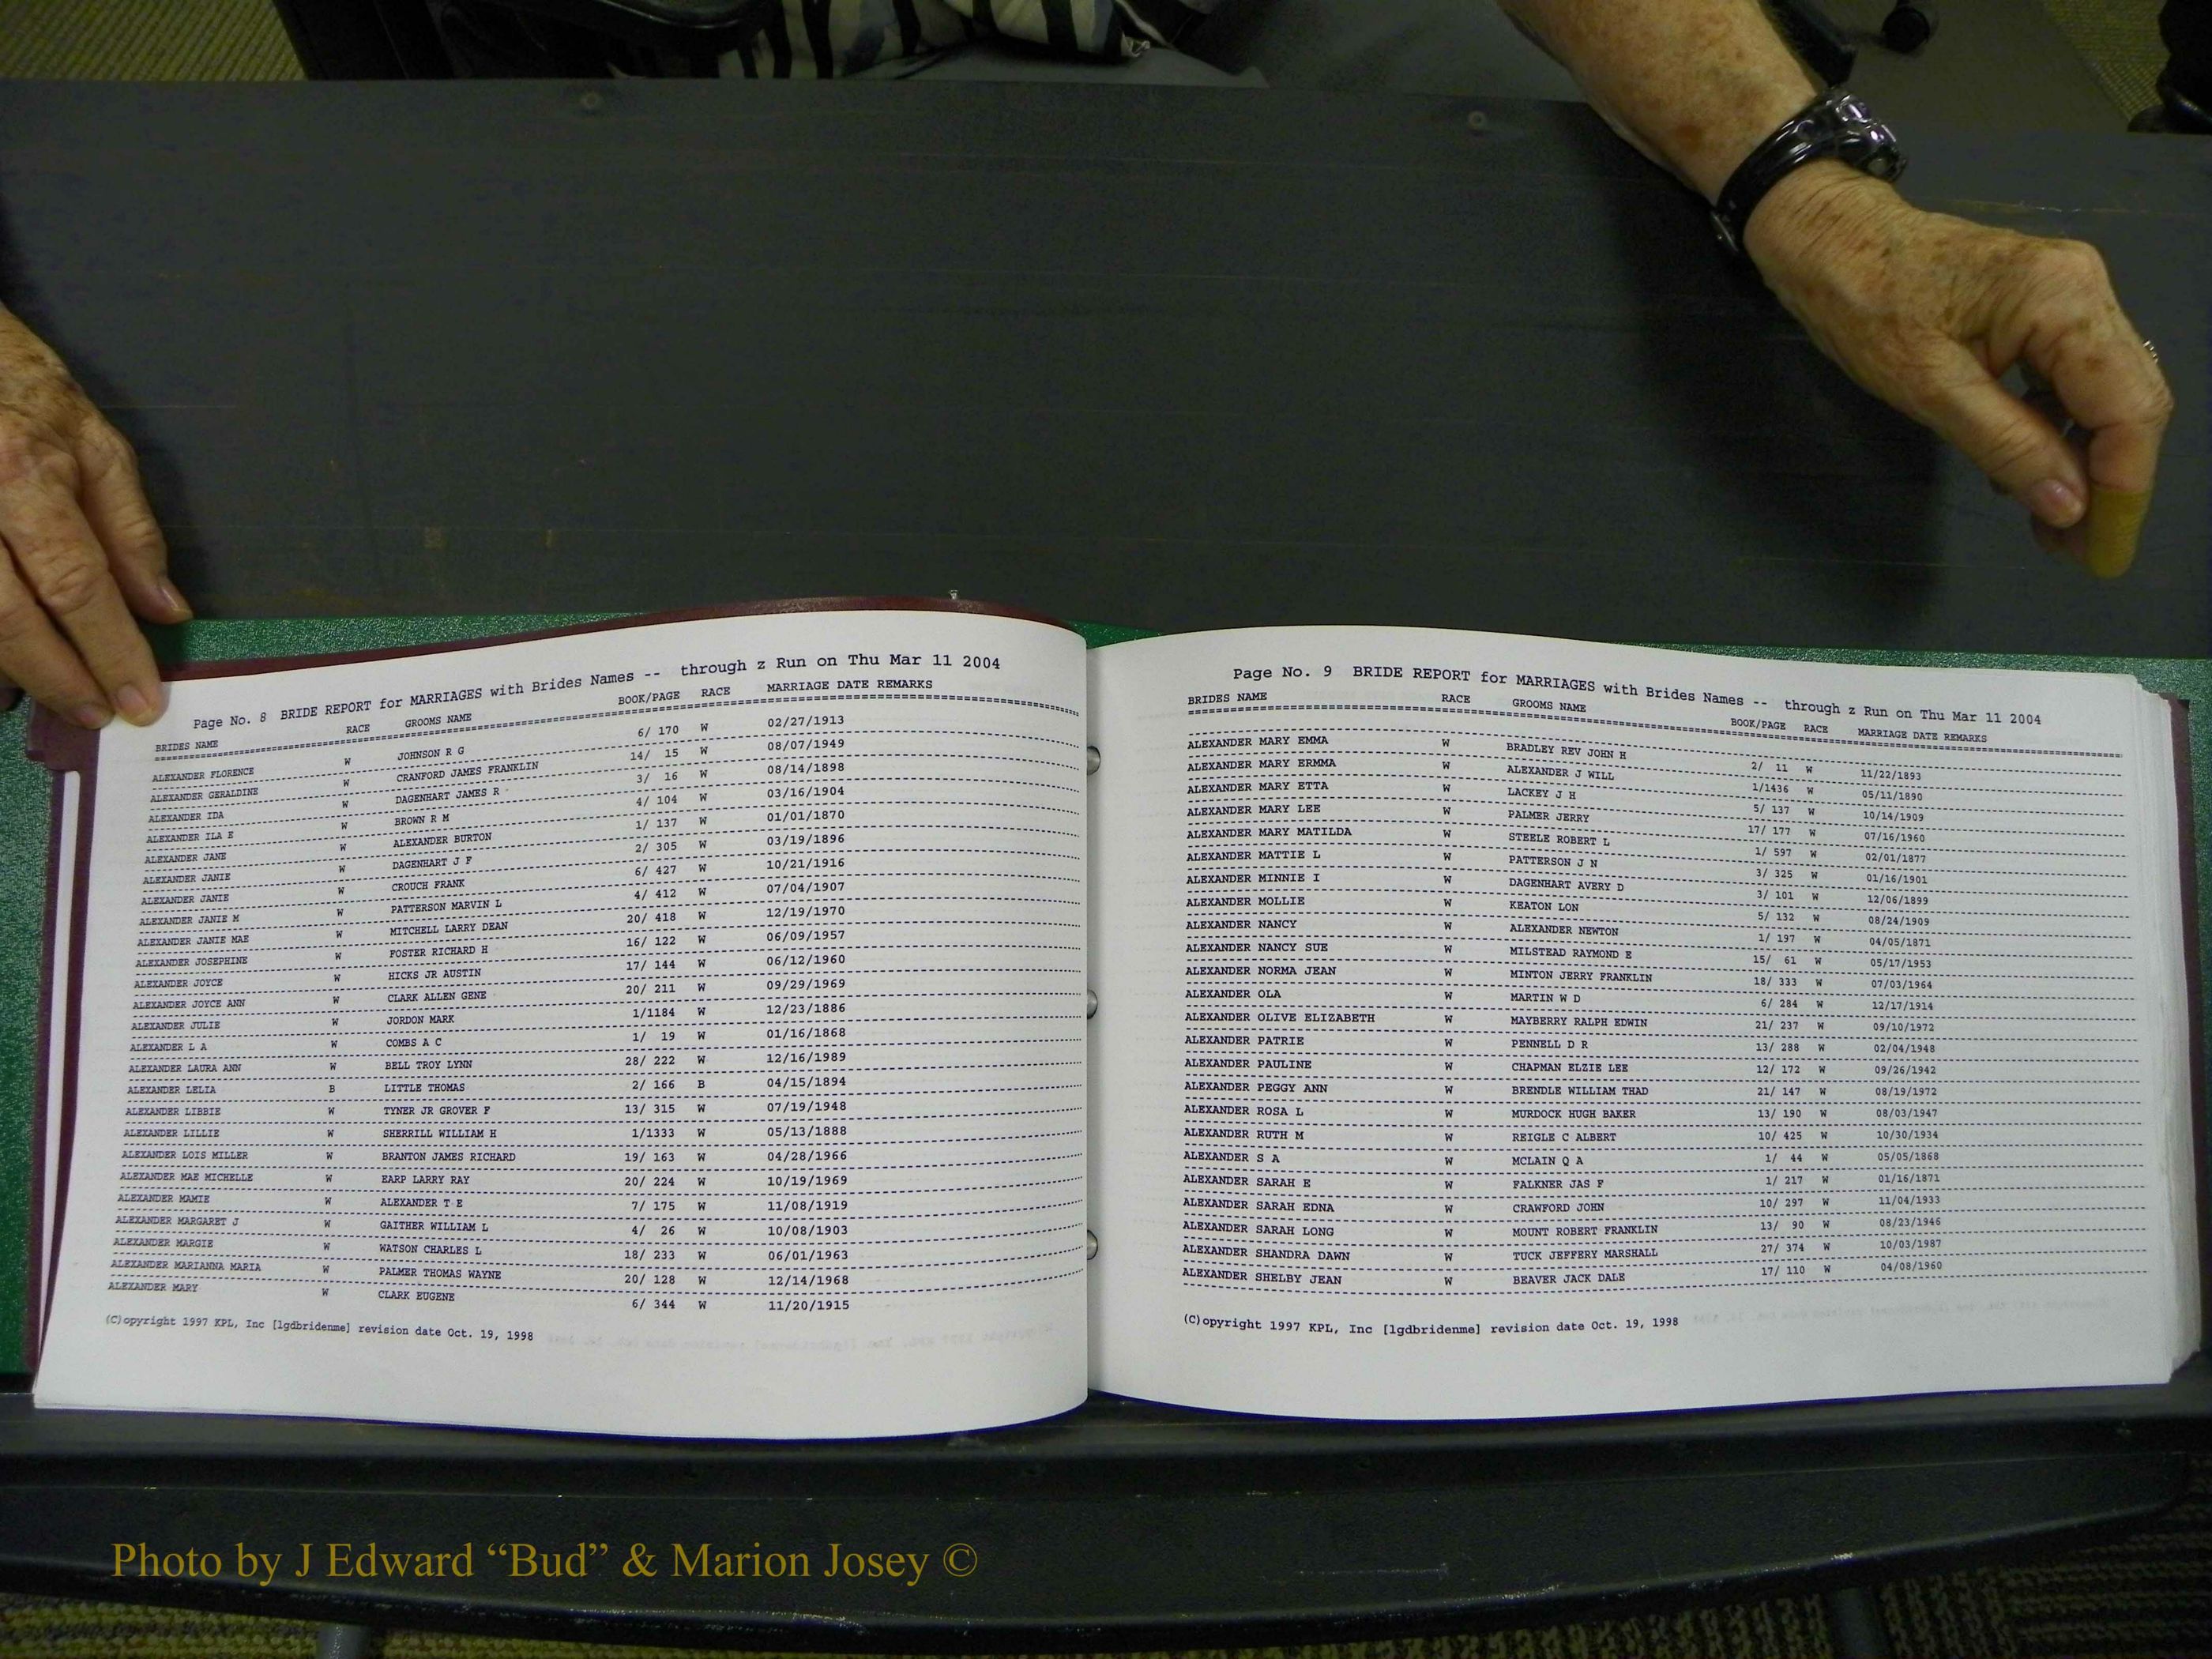 Page No. 8 BRIDE REPORT for MARRIAGES with Brides Names -- through z Run on Thu Mar 11 2004
BRIDES NAME RACE GROOMS NAME BOOK/PAGE RACE MARRIAGE DATE REMARKS
ALEXANDER FLORENCE W JOHNSON R G 6/ 170 W 02/27/1913
ALEXANDER GERALDINE W CRANFORD JAMES FRANKLIN 14/ 15 W 08/07/1949
ALEXANDER IDA W DAGENHART JAMES R 3/ 16 W 08/14/1898
ALEXANDER ILA E W BROWN R M 4/ 104 W 03/16/1904
ALEXANDER JANE W ALEXANDER BURTON 1/ 137 W 01/01/1870
ALEXANDER JANIE W DAGENHART J F 2/ 305 W 03/19/1896
ALEXANDER JANIE W CROUCH FRANK 6/ 427 W 10/21/1916
ALEXANDER JANIE M W PATTERSON MARVIN L 4/ 412 W 07/04/1907
ALEXANDER JANIE MAE W MITCHELL LARRY DEAN 20/ 418 W 12/19/1970
ALEXANDER JOSEPHINE W FOSTER RICHARD H 16/ 122 W 06/09/1957
ALEXANDER JOYCE W HICKS JR AUSTIN 17/ 144 W 06/12/1960
ALEXANDER JOYCE ANN W CLARK ALLEN GENE 20/ 211 W 09/29/1969
ALEXANDER JULIE W JORDON MARK 1/1184 W 12/23/1886
ALEXANDER L A W COMBS A C 1/ 19 W 01/16/1868
ALEXANDER LAURA ANN W BELL TROY LYNN 28/ 222 W 12/16/1989
ALEXANDER LELIA B LITTLE THOMAS 2/ 166 B 04/15/1894
ALEXANDER LIBBIE W TYNER JR GROVER F 13/ 315 W 07/19/1948
ALEXANDER LILLIE W SHERRILL WILLIAM H 1/1333 W 05/13/1888
ALEXANDER LOIS MILLER W BRANTON JAMES RICHARD 19/ 163 W 04/28/1966
ALEXANDER MAE MICHELLE W EARP LARRY RAY 20/ 224 W 10/19/1969
ALEXANDER MAMIE W ALEXANDER T E 7/ 175 W 11/08/1919
ALEXANDER MARGARET J W GAITHER WILLIAM L 4/ 26 W 10/08/1903
ALEXANDER MARGIE W WATSON CHARLES L 18/ 233 W 06/01/1963
ALEXANDER MARIANNA MARIA W PALMER THOMAS WAYNE 20/ 128 W 12/14/1968
ALEXANDER MARY W CLARK EUGENE 6/ 344 W 11/20/1915
(C)opyright 1997 KPL, Inc [lgdbridenme] revision date Oct. 19, 1998
Page No. 9 BRIDE REPORT for MARRIAGES with Brides Names -- through z Run on Thu Mar 11 2004
BRIDES NAME RACE GROOMS NAME BOOK/PAGE RACE MARRIAGE DATE REMARKS
ALEXANDER MARY EMMA W BRADLEY REV JOHN H 2/ 11 W 11/22/1893
ALEXANDER MARY ERMMA W ALEXANDER J WILL 1/1436 W 05/11/1890
ALEXANDER MARY ETTA W LACKEY J H 5/ 137 W 10/14/1909
ALEXANDER MARY LEE W PALMER JERRY 17/ 177 W 07/16/1960
ALEXANDER MARY MATILDA W STEELE ROBERT L 1/ 597 W 02/01/1877
ALEXANDER MATTIE L W PATTERSON J N 3/ 325 W 01/16/1901
ALEXANDER MINNIE I W DAGENHART AVERY D 3/ 101 W 12/06/1899
ALEXANDER MOLLIE W KEATON LON 5/ 132 W 08/24/1909
ALEXANDER NANCY W ALEXANDER NEWTON 1/ 197 W 04/05/1871
ALEXANDER NANCY SUE W MILSTEAD RAYMOND E 15/ 61 W 05/17/1953
ALEXANDER NORMA JEAN W MINTON JERRY FRANKLIN 18/ 333 W 07/03/1964
ALEXANDER OLA W MARTIN W D 6/ 284 W 12/17/1914
ALEXANDER OLIVE ELIZABETH W MAYBERRY RALPH EDWIN 21/ 237 W 09/10/1972
ALEXANDER PATRIE W PENNELL D R 13/ 288 W 02/04/1948
ALEXANDER PAULINE W CHAPMAN ELZIE LEE 12/ 172 W 09/26/1942
ALEXANDER PEGGY ANN W BRENDLE WILLIAM THAD 21/ 147 W 08/19/1972
ALEXANDER ROSA L W MURDOCK HUGH BAKER 13/ 190 W 08/03/1947
ALEXANDER RUTH M W REIGLE C ALBERT 10/ 425 W 10/30/1934
ALEXANDER S A W MCLAIN Q A 1/ 44 W 05/05/1868
ALEXANDER SARAH E W FALKNER JAS F 1/ 217 W 01/16/1871
ALEXANDER SARAH EDNA W CRAWFORD JOHN 10/ 297 W 11/04/1933
ALEXANDER SARAH LONG W MOUNT ROBERT FRANKLIN 13/ 90 W 08/23/1946
ALEXANDER SHANDRA DAWN W TUCK JEFFERY MARSHALL 27/ 374 W 10/03/1987
ALEXANDER SHELBY JEAN W BEAVER JACK DALE 17/ 110 W 04/08/1960
(C)opyright 1997 KPL, Inc [lgdbridenme] revision date Oct. 19, 1998
Photo by J Edward “Bud” & Marion Josey ©